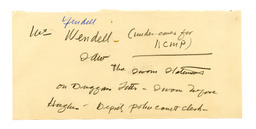 Yendell
Mrs Wendell - (under-cover for
RCMP)
I saw
The Sworn Statement
on Duggan
- Sworn before
Hughes - Deputy police court clerk -